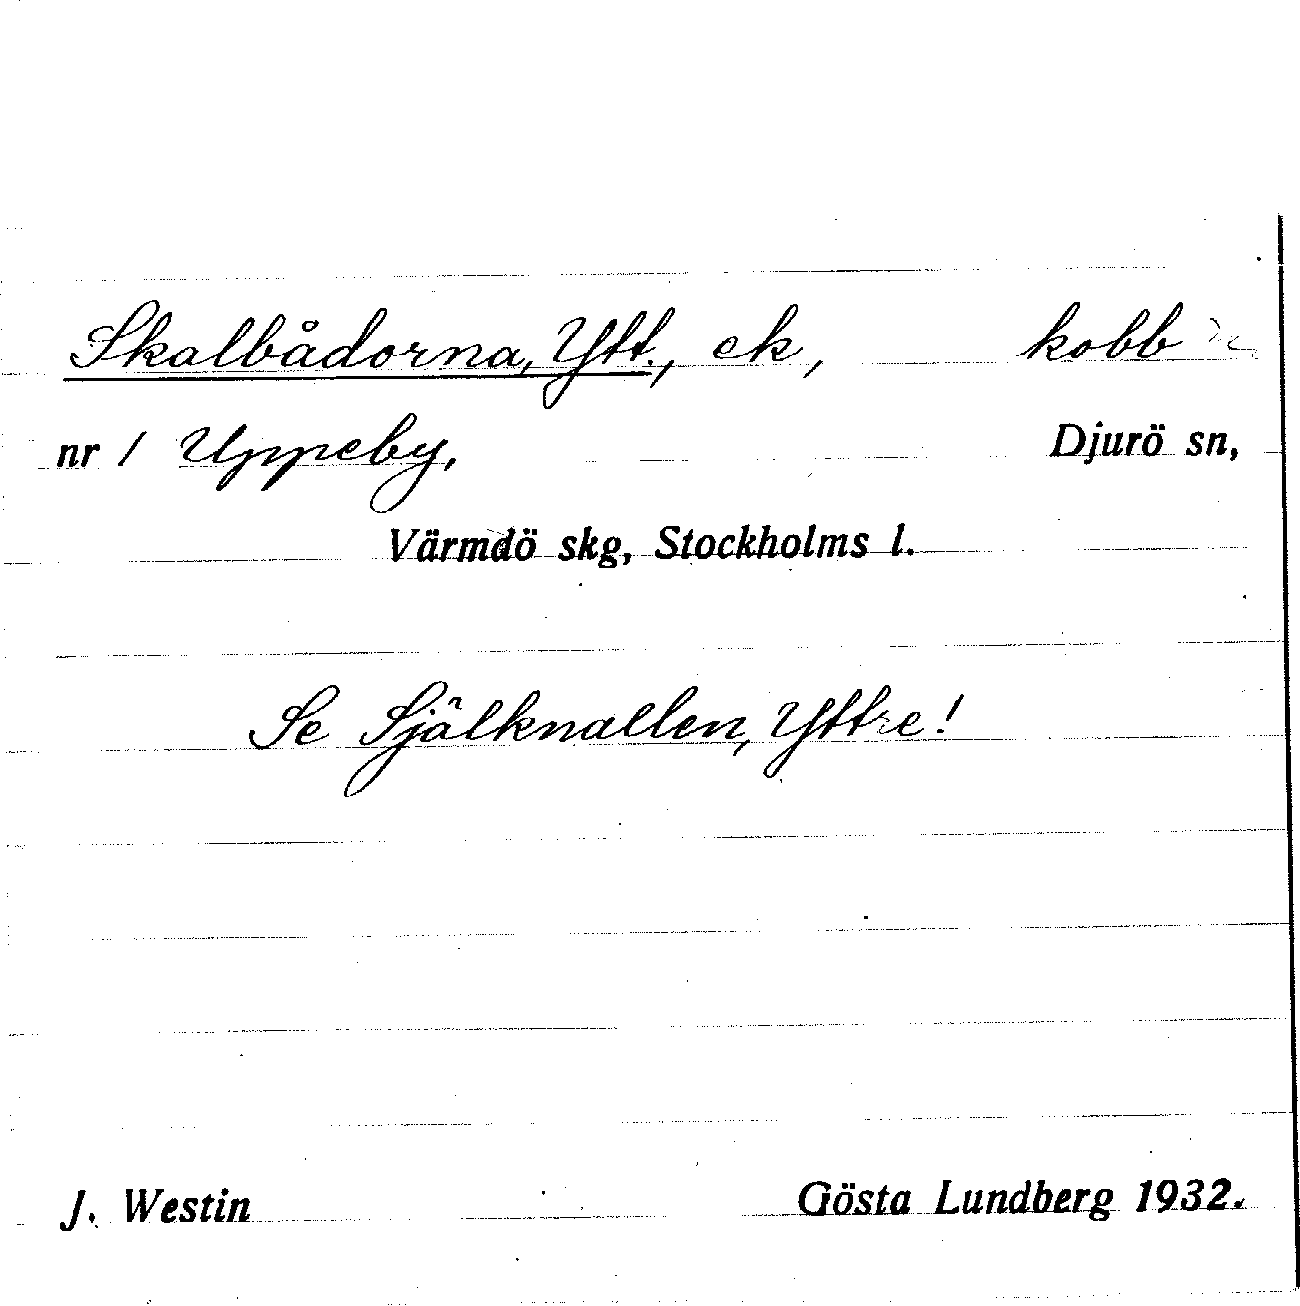 Skalbådorna, Ytt., ek, kobb
nr 1 Uppeby, Djurö sn,
Värmdö skg, Stockholms l.
Se Själknallen, Yttre!
J. Westin Gösta Lundberg 1932.